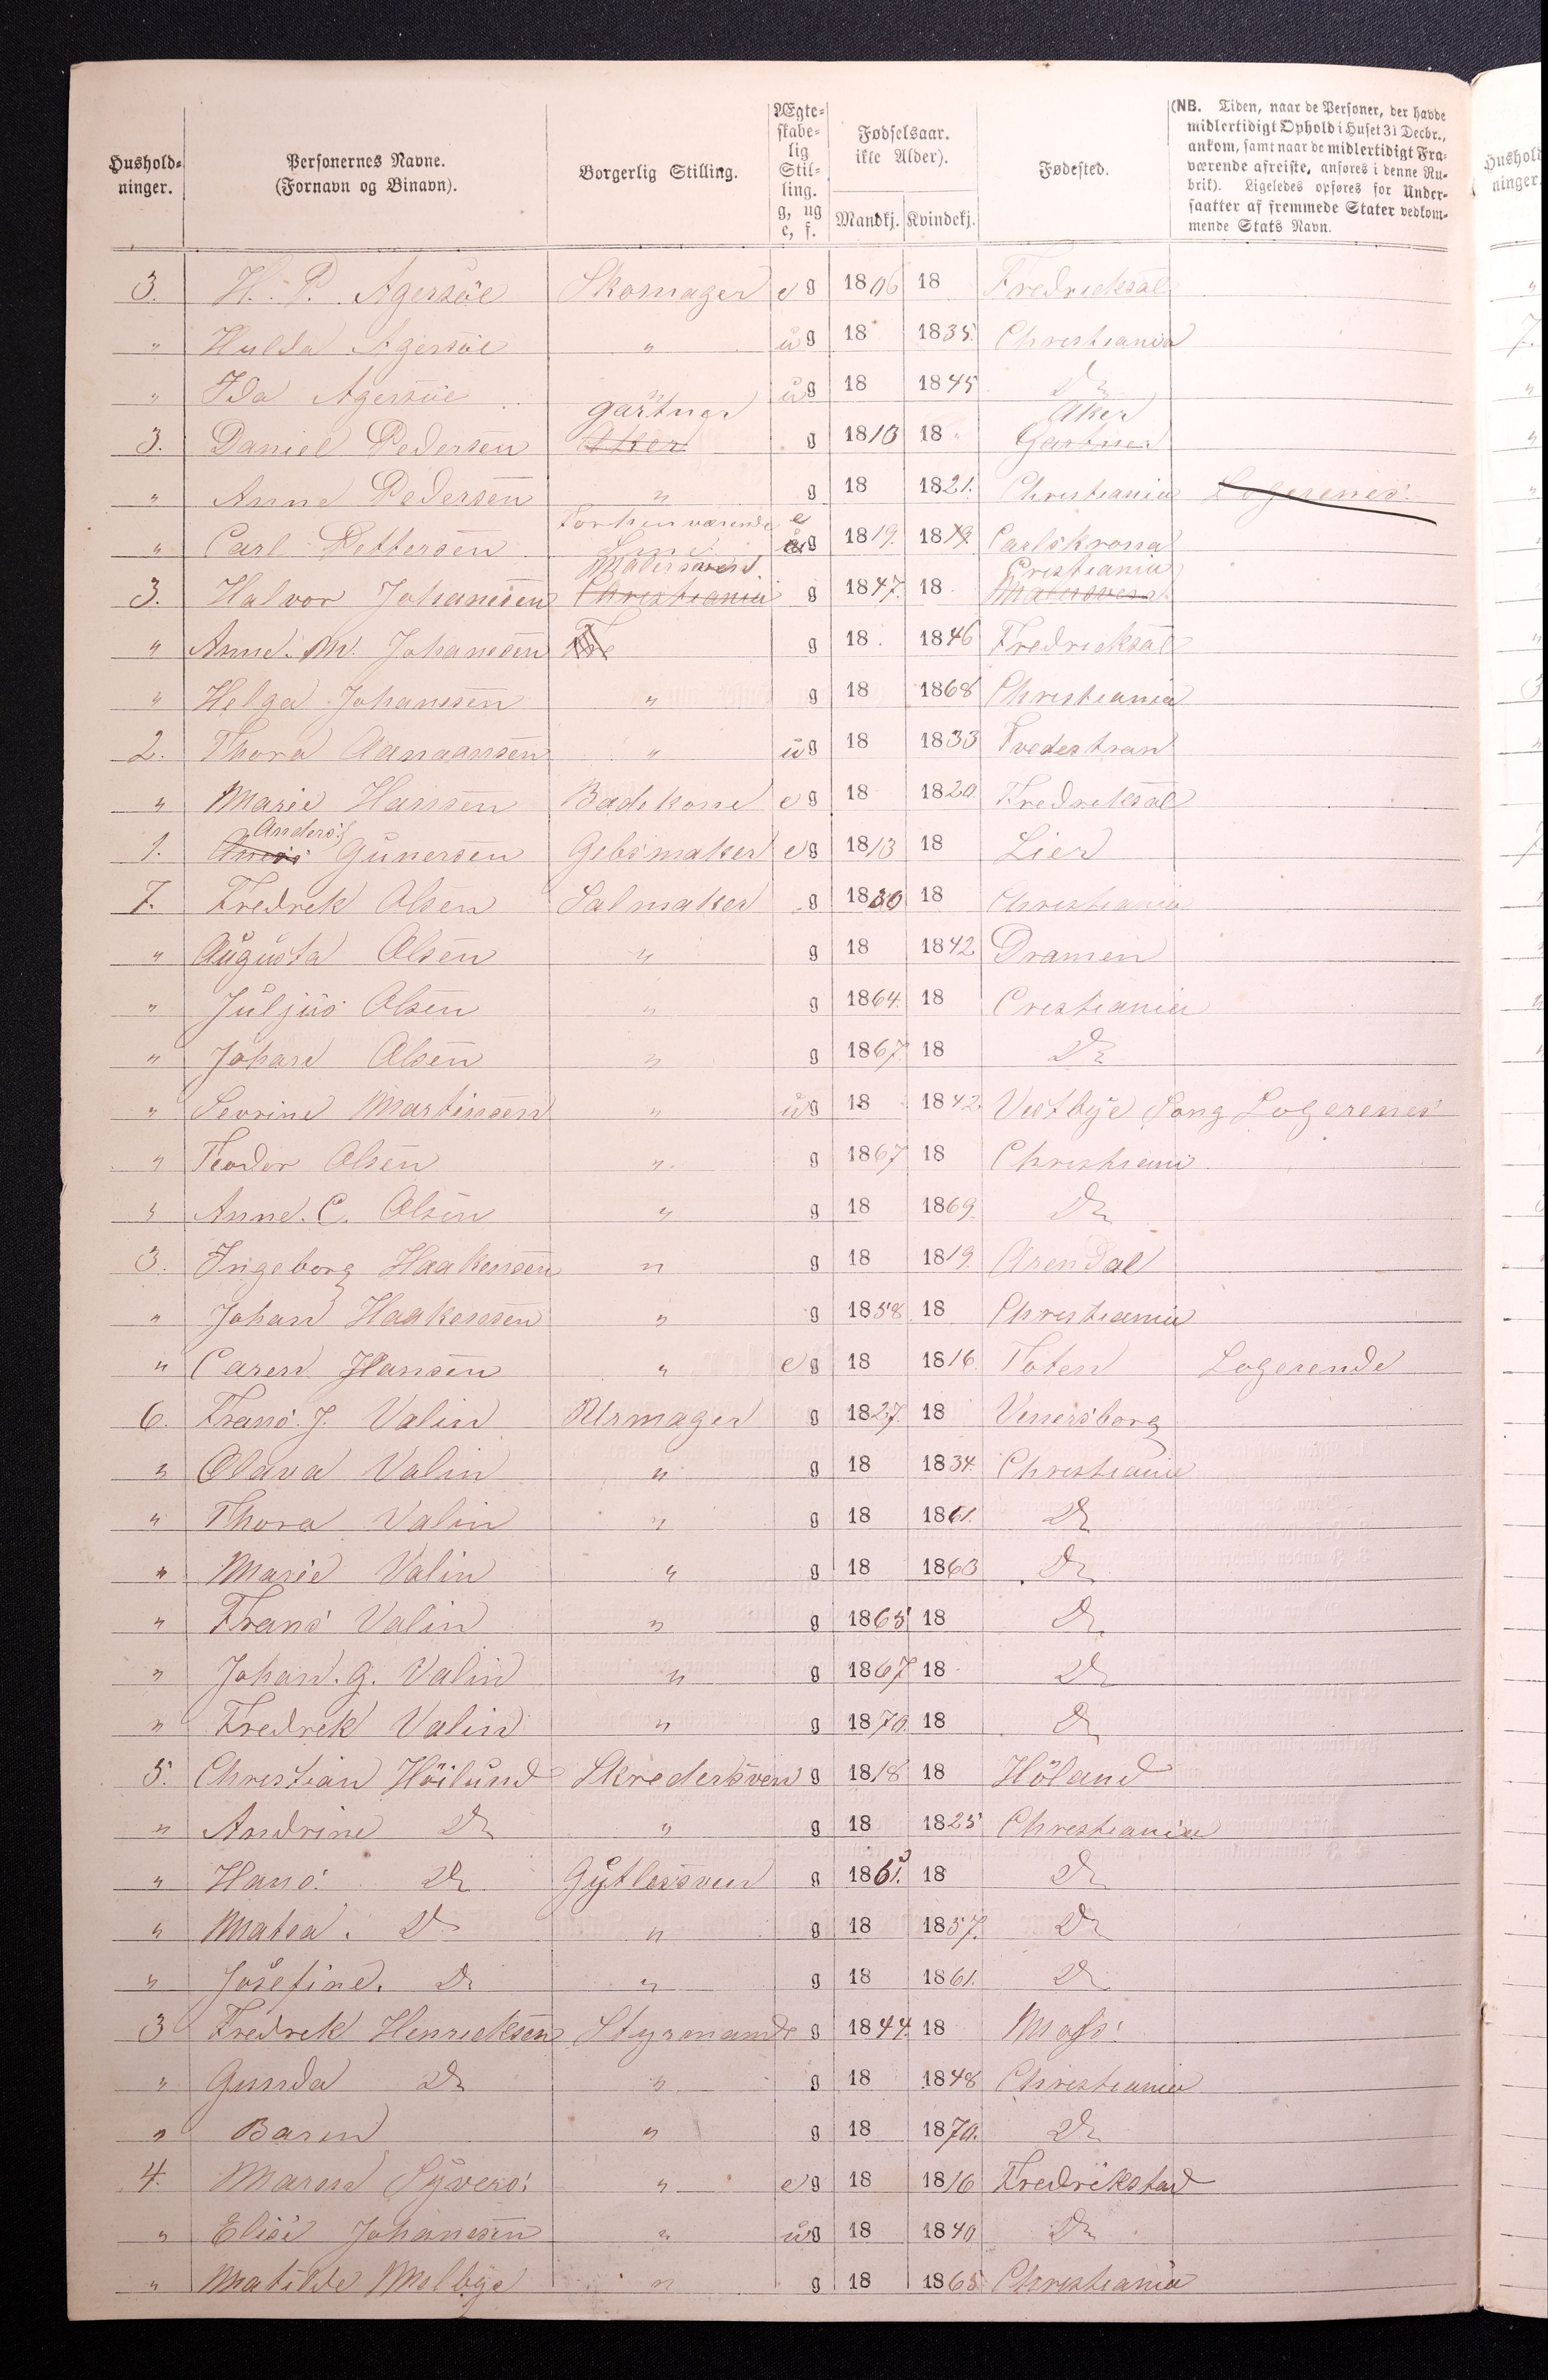 Hushold-
ninger.
Personernes Navne.
(Fornavn og Binavn).
Borgerlig Stilling.
Ægte-
skabe-
lig
Stil-
ling.
g, ug
e, f.
Fødselsaar.
ikke Alder).
Mandkj. Kvindekj.
Fødested.
(NB. Tiden, naar de Personer, der havde
midlertidigt Ophold i Huset 31 Decbr.,
ankom, samt naar de midlertidigt Fra-
værende afreiste, anføres i denne Ru-
brik). Ligeledes opføres for Under-
saatter af fremmede Stater vedkom-
mende Stats Navn.
3. H. P. Agersøe Skomager e g 1806 18 Fredrieksal
" Hulda Agersøe " u g 18 1835. Christiania
" Ida Agersøe " u g 18 1845 Do
gartner Aker
3. Daniel Pedersen Aker g 1813 18 " Gartner
" Anne Pedersen " g 18 1821. Christiania Logerenes
Forhenværende e
" Carl Pettersen u g 1819. 1819. Carlskrona
Malersvend Crestiania
3. Halvor Johanesen Christiania g 1847. 18 Malersvend
" Anne. M. Johanesen g 18 1846 Fredrieksal
" Helga Johanesen " g 18 1868 Christiania
2. Thora Aanaansen " u g 18 1833 Tvedestran
" Marie Hansen Badekone e g 18 1820. Fredreksal
Anders
1. Gunersen Gebsmaker e g 1813 18 Lier
7. Fredrek Olsen Salmaker g 1830 18 Christiania
" Augusta Olsen " g 18 1842 Dramen
" Juljus Olsen " g 1864. 18 Crestiania
" Johan Olsen " g 1867. 18 Do
" Sevrine Martinsen " u g 18 1842. Vestbye Song Logerenes
" Teodor Olsen " g 1867 18 Christiani
" Anne. C. Olsen " g 18 1869. Do
3. Ingeborg Haakensen " g 18 1819. Arendal
" Johan Haakensen " g 1858. 18 Christiania
" Caren Hansen " e g 18 1816. Toten Logerende
6. Frans. J. Valin Urmager g 1827. 18 Venersborg
" Olava Valin " g 18 1834. Christiania
" Thora Valin " g 18 1861. Do
" Marie Valin " g 18 1863 Do
" Frans Valin " g 1865 18 Do
" Johan. G. Valin " g 1867 18 Do
" Fredrek Valin " g 1870. 18 Do
5. Christian Höilund Skredersven g 1818 18 Höland
" Andrine Do " g 18 1825 Christiania
" Hans Do Gytlersven g 18 Do
" Matea. Do " g 18 1857. Do
" Josefine. Do " g 18 1861. Do
3 Fredrek Henrieksen Styrmand g 1844. 18 Moss
" Gunda Do " g 18 1848 Christiania
" Baren " g 18 1870. Do
4. Maren Syvers: " e g 18 1816 Fredrikstad
" Elise Johanesen " u g 18 1840 Do
" Matilde Melbye " g 18 1865 Christiania
Hushold
ninger.